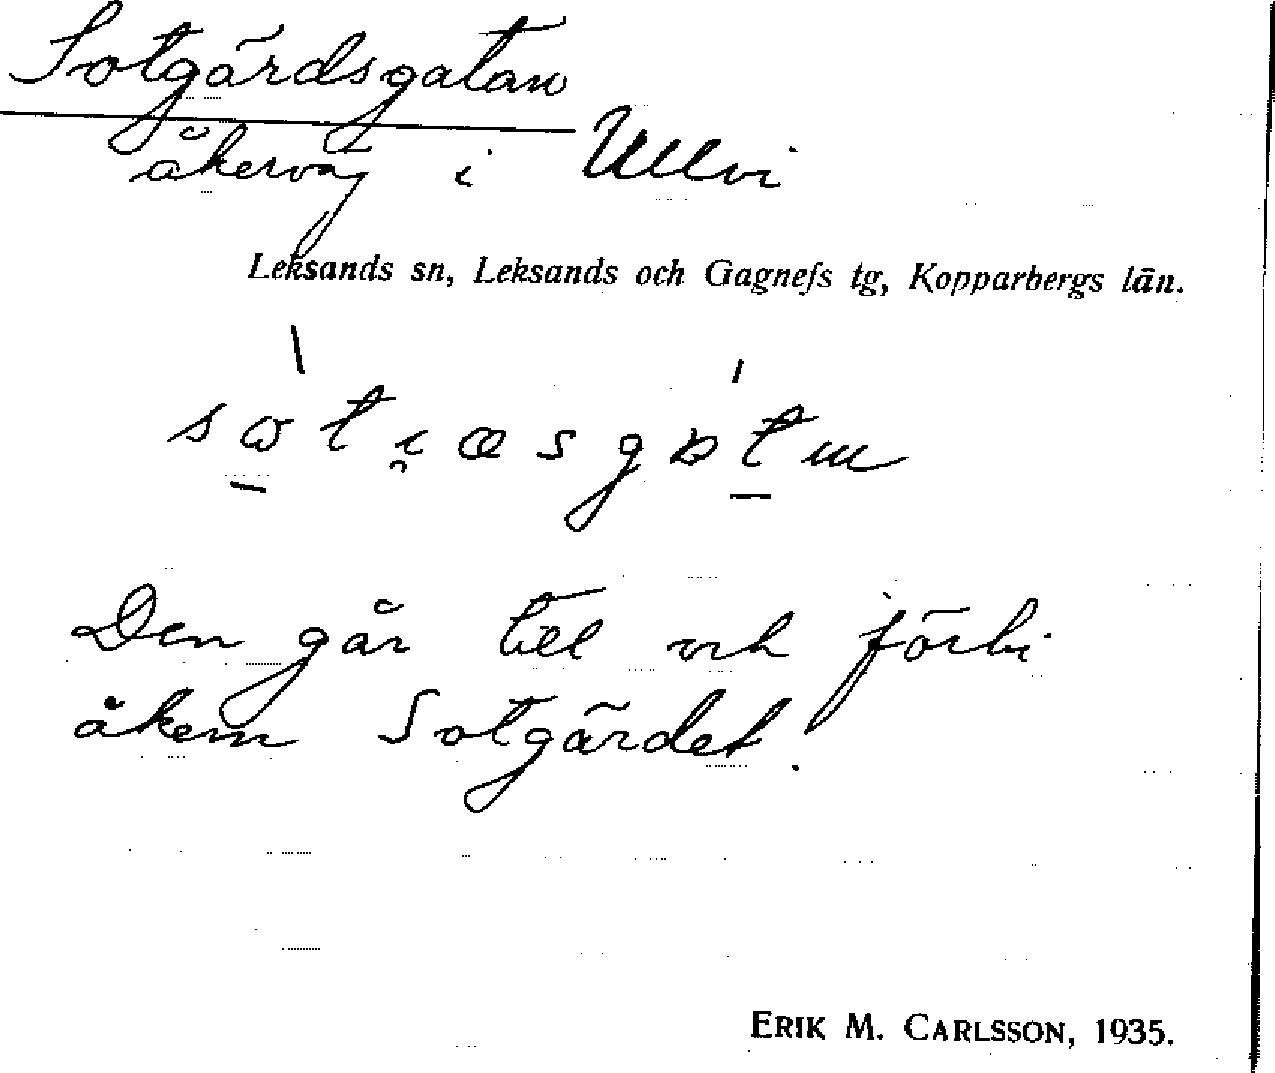 Sotgärdsgatan
åkerväg i Ullvi
Leksands sn, Leksands och Gagnefs tg, Kopparbergs län.
Den går till och förbi
åkern Sotgärdet.
ERIK M. CARLSSON, 1935.